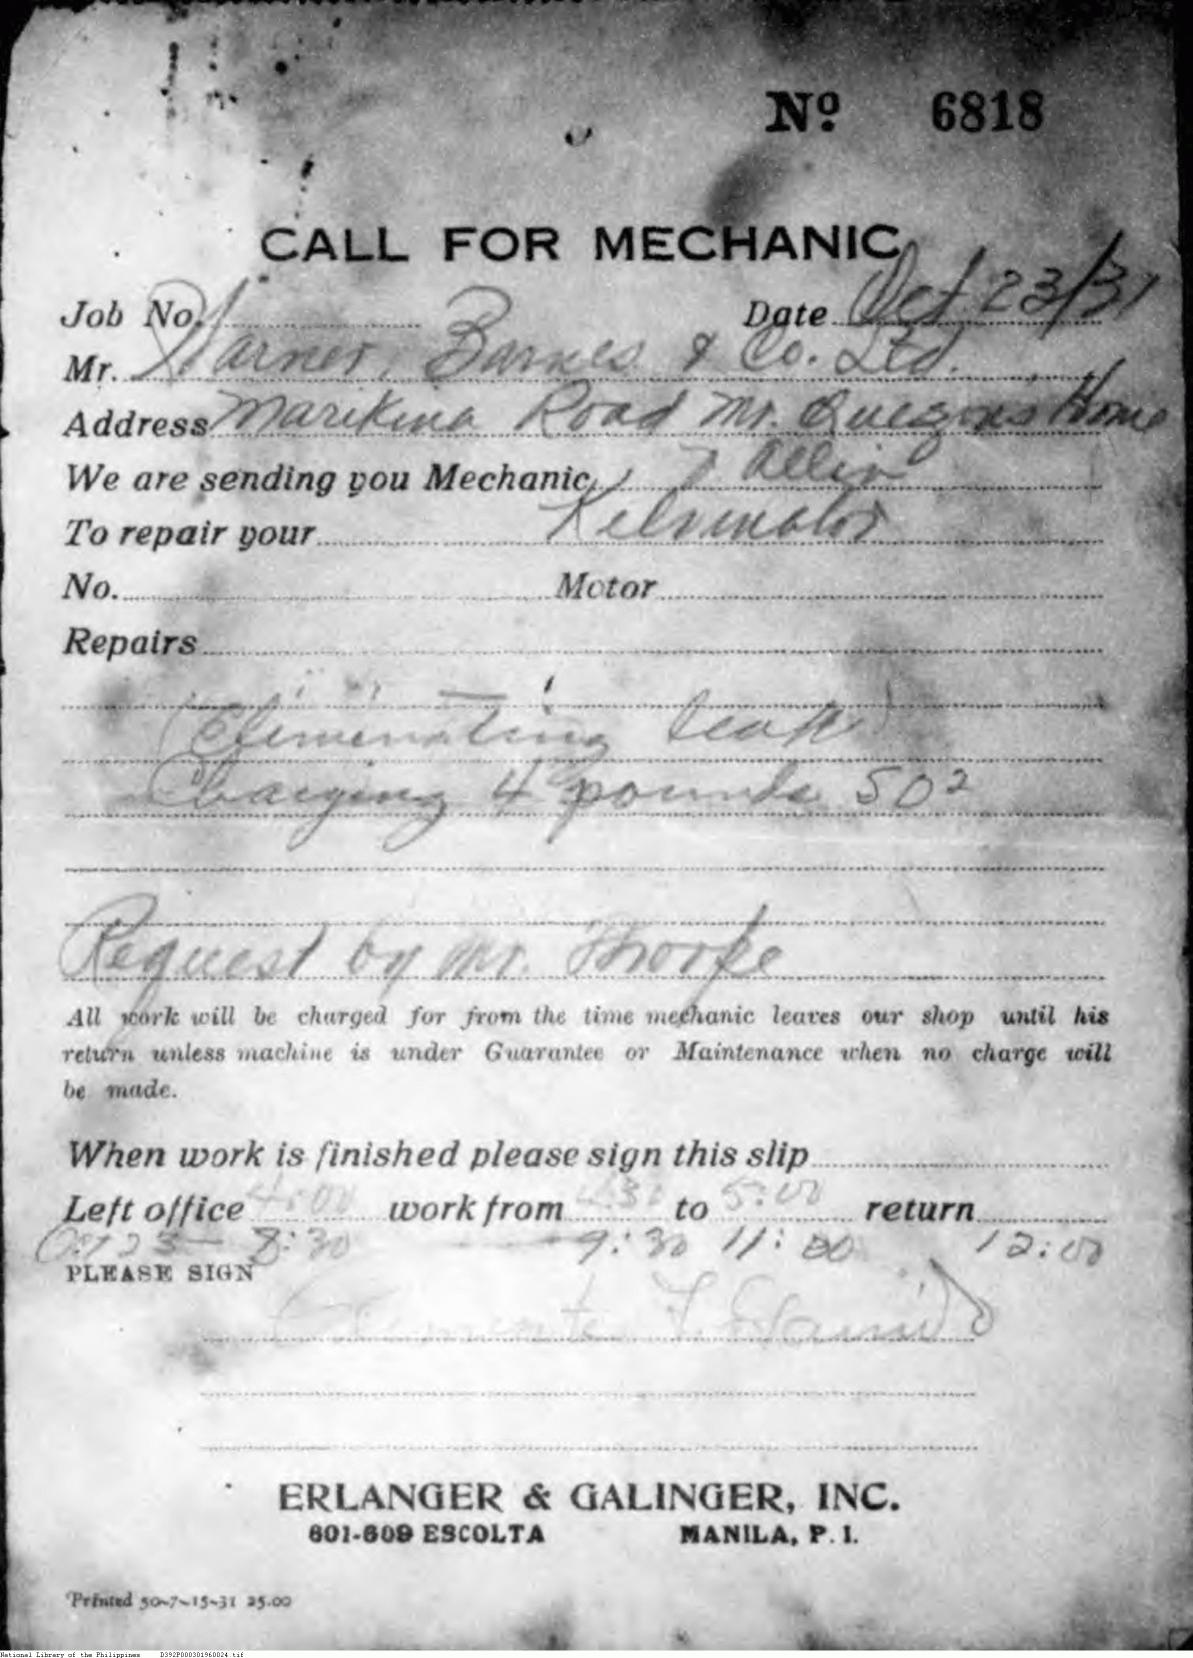 Nº 6818
CALL FOR MECHANIC
Job No. Date Oct 23/31
Mr. Warner, Barnes & Co. Ltd.
Address Marikina Road Mr. Quezon's Home
We are sending you Mechanic
To repair your Kelvinator
No. Motor
Repairs
Eliminating leak
Charging 4 pounds SO2
Request by Mr. Thorpe
All work will be charged for from the time mechanic leaves our shop until his
return unless machine is under Guarantee or Maintenance when no charge will
be made.
When work is finished please sign this slip
Left office 4:00 work from 4:30 to 5:00 return
Oct 23 — 8:30 — 9:30 11:00 12:00
PLEASE SIGN
ERLANGER & GALINGER, INC.
601-609 ESCOLTA MANILA, P. I.
Printed 50-7-15-31 25.00
National Library of the Philippines D392P000301960024.tif